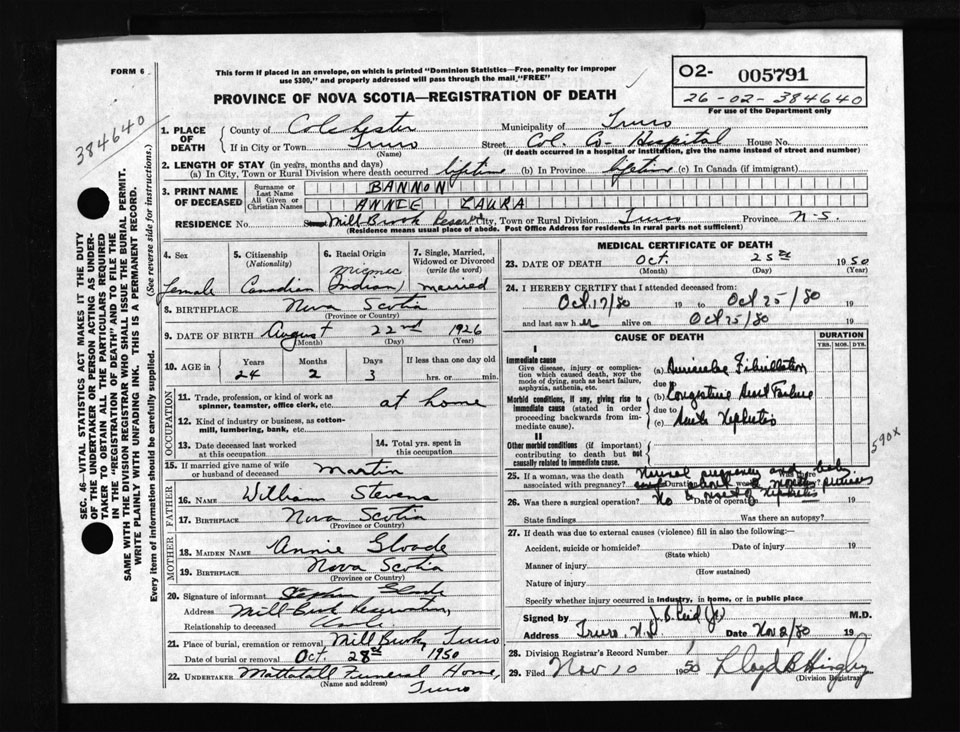 FORM 6
This form if placed in an envelope, on which is printed "Dominion Statistics—Free, penalty for improper
use $300," and properly addressed will pass through the mail "FREE"
PROVINCE OF NOVA SCOTIA—REGISTRATION OF DEATH
O2- 005791
26-02-384640
For use of the Department only
384640
SEC. 46—VITAL STATISTICS ACT MAKES IT THE DUTY
OF THE UNDERTAKER OR PERSON ACTING AS UNDER-
TAKER TO OBTAIN ALL THE PARTICULARS REQUIRED
IN THE "REGISTRATION OF DEATH" AND TO FILE THE
SAME WITH THE DIVISION REGISTRAR WHO SHALL ISSUE THE BURIAL PERMIT.
WRITE PLAINLY WITH UNFADING INK. THIS IS A PERMANENT RECORD.
Every item of information should be carefully supplied. (See reverse side for instructions.)
1. PLACE OF DEATH
County of Colchester Municipality of Truro
If in City or Town Truro Street Col. Co. Hospital House No.
(Name) (If death occurred in a hospital or institution, give the name instead of street and number)
2. LENGTH OF STAY (in years, months and days)
(a) In City, Town or Rural Division where death occurred lifetime (b) In Province lifetime (c) In Canada (if immigrant)
3. PRINT NAME OF DECEASED
Surname or Last Name BANNON
All Given or Christian Names ANNIE LAURA
RESIDENCE No. Mill Brook Reserve City, Town or Rural Division Truro Province N-S.
(Residence means usual place of abode. Post Office Address for residents in rural parts not sufficient)
4. Sex female
5. Citizenship (Nationality) Canadian
6. Racial Origin Micmac Indian
7. Single, Married, Widowed or Divorced (write the word) married
8. BIRTHPLACE Nova Scotia
(Province or Country)
9. DATE OF BIRTH August 22nd 1926
(Month) (Day) (Year)
10. AGE in Years 24 Months 2 Days 3 If less than one day old hrs. or min.
OCCUPATION
11. Trade, profession, or kind of work as
spinner, teamster, office clerk, etc. at home
12. Kind of industry or business, as cotton-
mill, lumbering, bank, etc.
13. Date deceased last worked
at this occupation
14. Total yrs. spent in
this occupation
15. If married give name of wife
or husband of deceased Martin
FATHER
16. NAME William Stevens
17. BIRTHPLACE Nova Scotia
(Province or Country)
MOTHER
18. MAIDEN NAME Annie Gloade
19. BIRTHPLACE Nova Scotia
(Province or Country)
20. Signature of informant Stephen Glode
Address Mill Brook Reservation,
Relationship to deceased Uncle.
21. Place of burial, cremation or removal Mill Brook, Truro
Date of burial or removal Oct. 28th 1950
22. UNDERTAKER Mattatall Funeral Home,
(Name and address) Truro
MEDICAL CERTIFICATE OF DEATH
23. DATE OF DEATH Oct. 25th 1950
(Month) (Day) (Year)
24. I HEREBY CERTIFY that I attended deceased from:
Oct 17/50 19 to Oct 25/50 19
and last saw h er alive on Oct 25/50 19
CAUSE OF DEATH
DURATION
YRS. MOS. DYS.
I
Immediate cause
Give disease, injury or complica-
tion which caused death, NOT the
mode of dying, such as heart failure,
asphyxia, asthenia, etc.
(a) Auricular Fibrillation
due to
Morbid conditions, if any, giving rise to
immediate cause (stated in order
proceeding backwards from im-
mediate cause).
(b) Congestive Heart Failure
due to
(c) Acute Nephritis
II
Other morbid conditions (if important)
contributing to death but not
causally related to immediate cause.
590X
25. If a woman, was the death
associated with pregnancy? Normal pregnancy and baby
born 2 months previous
to onset of Nephritis
26. Was there a surgical operation? No Date of operation 19
State findings Was there an autopsy?
27. If death was due to external causes (violence) fill in also the following:—
Accident, suicide or homicide? Date of injury 19
(State which)
Manner of injury
(How sustained)
Nature of injury
Specify whether injury occurred in industry, in home, or in public place
Signed by J. B. Reid (Jr) M.D.
Address Truro, N.S Date Nov 2/50 19
28. Division Registrar's Record Number 1
29. Filed Nov 10 1950 Lloyd B Hingley
(Division Registrar)